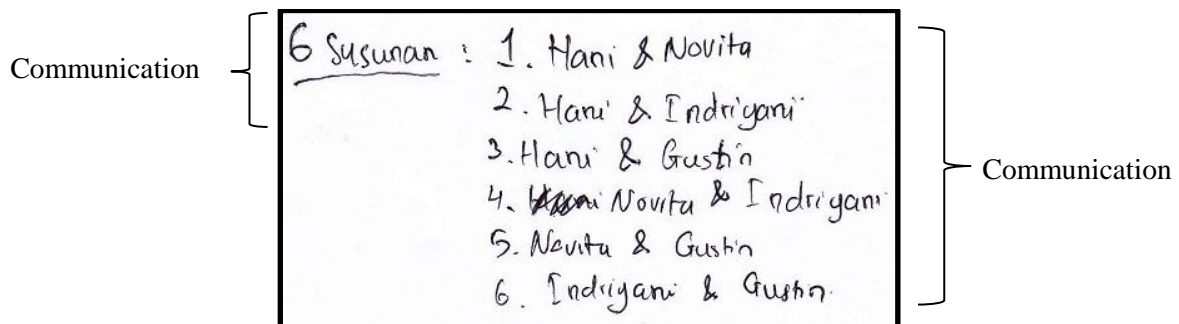 Communication
6 Susunan : 1. Hani & Novita
2. Hani & Indriyani
3. Hani & Gustin
4. Novita & Indriyani
5. Novita & Gustin
6. Indriyani & Gustin.
Communication